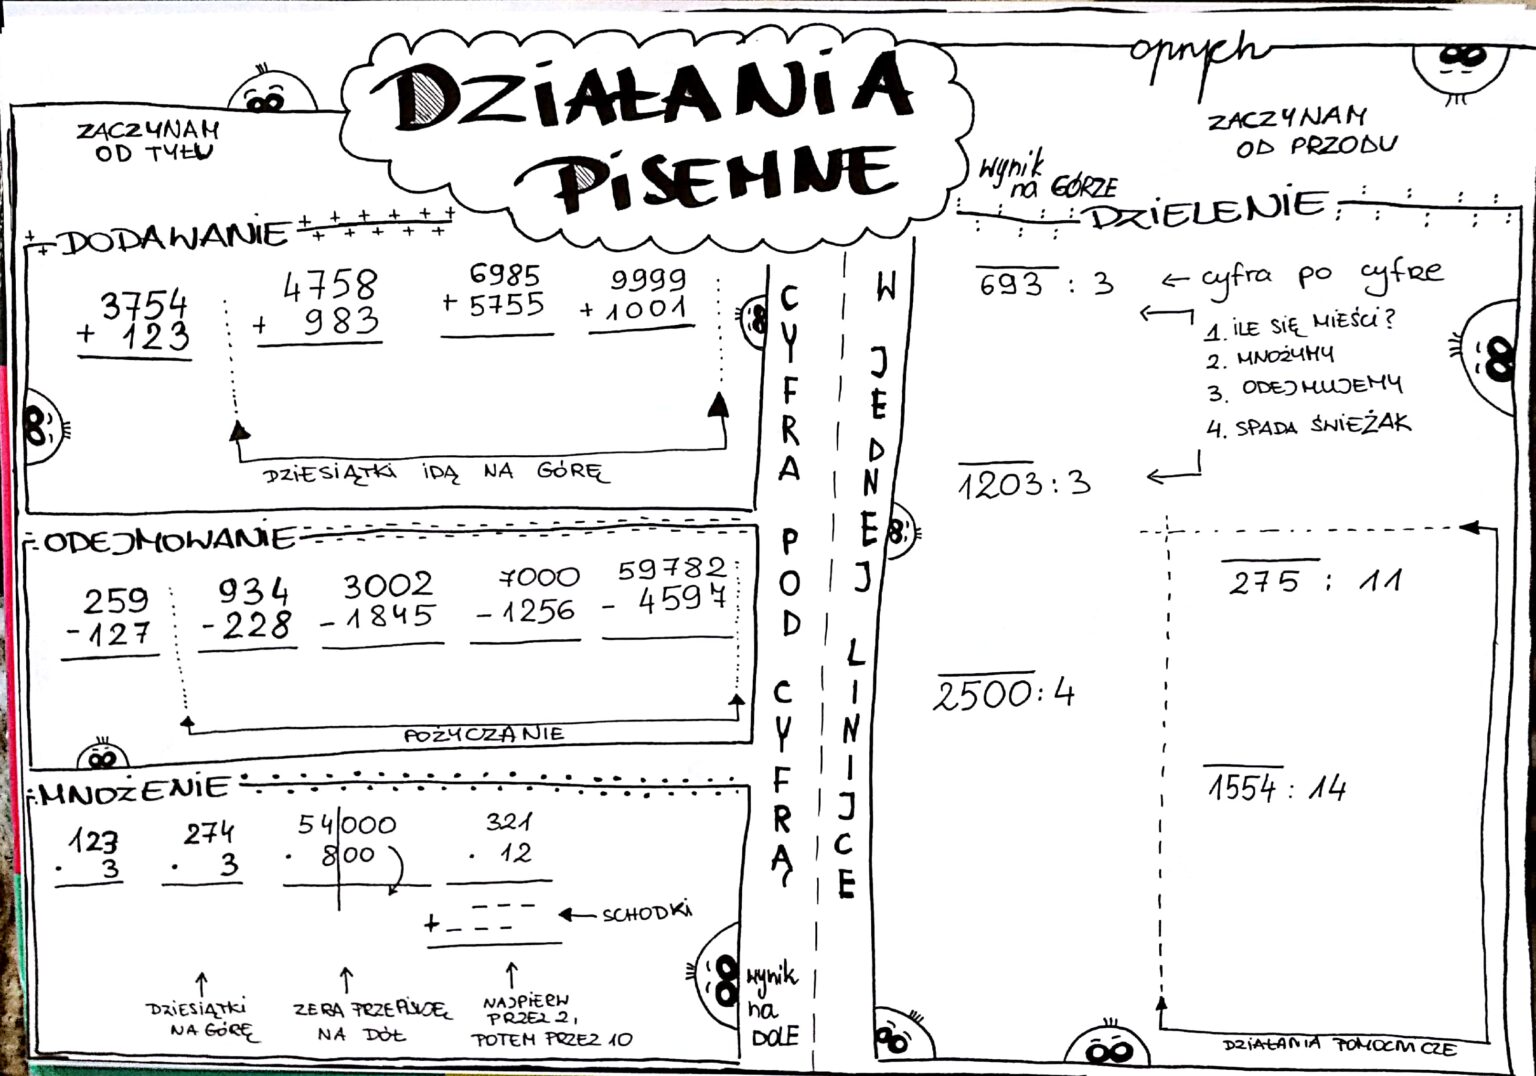 DZIAŁANIA
PISEMNE
opnych
ZACZYNAM
OD TYŁU
DODAWANIE
3754
+ 123
4758
+ 983
6985
+ 5755
9999
+ 1001
DZIESIĄTKI IDĄ NA GÓRĘ
ODEJMOWANIE
259
- 127
934
- 228
3002
- 1845
7000
- 1256
59782
- 4597
POŻYCZANIE
MNOŻENIE
123
· 3
274
· 3
54000
· 800
321
· 12
+
SCHODKI
DZIESIĄTKI
NA GÓRĘ
ZERA PRZEPISUJĘ
NA DÓŁ
NAJPIERW
PRZEZ 2,
POTEM PRZEZ 10
CYFRA POD CYFRĄ
wynik
na
DOLE
W JEDNEJ LINIJCE
ZACZYNAM
OD PRZODU
wynik
na GÓRZE
DZIELENIE
693 : 3 ← cyfra po cyfrze
1. ILE SIĘ MIEŚCI?
2. MNOŻYMY
3. ODEJMUJEMY
4. SPADA ŚWIEŻAK
1203 : 3
275 : 11
2500 : 4
1554 : 14
DZIAŁANIA POMOCNICZE